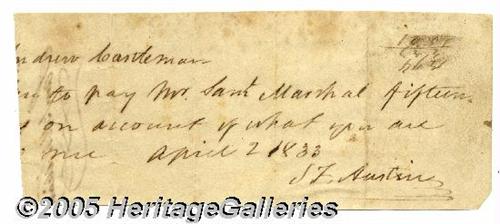 ndrew Castleman
to pay Mr. Saml Marshal fifteen
s on account of what you are
me April 2 1833
S F Austin
©2005 HeritageGalleries